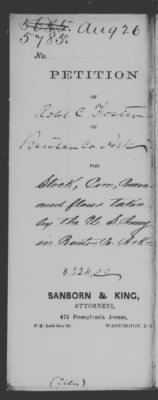 5665. Aug 26
5785.
No.
PETITION
OF
Robt C. Foster
OF
Benton Co. Ark
FOR
Stock, Corn,
and flour taken
by the U. S. Army
in Benton Co. Ark
$324.00
SANBORN & KING,
ATTORNEYS,
475 Pennsylvania Avenue,
P. O. Lock Box
WASHINGTON, D. C.